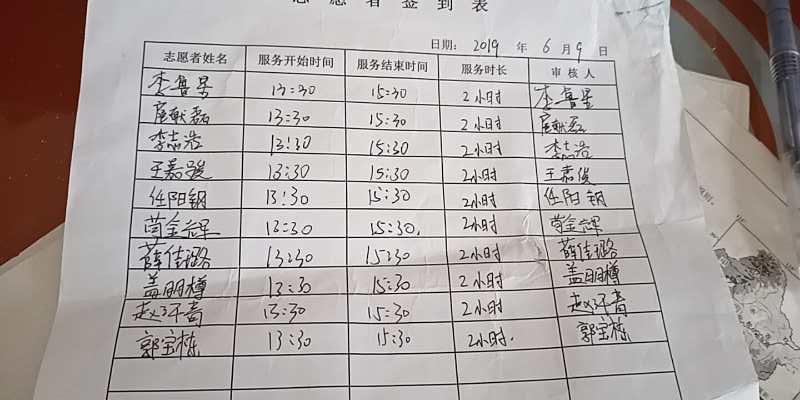 志愿者签到表
日期: 2019 年 6 月 9 日
志愿者姓名 服务开始时间 服务结束时间 服务时长 审核人
李鲁星 13:30 15:30 2小时 李鲁星
扈献磊 13:30 15:30 2小时 扈献磊
李志浩 13:30 15:30 2小时 李志浩
王嘉骏 13:30 15:30 2小时 王嘉俊
任阳钢 13:30 15:30 2小时 任阳钢
13:30 15:30. 2小时
薛佳璐 13:30 15:30 2小时 薛佳璐
盖明樽 13:30 15:30 2小时 盖明樽
13:30 15:30 2小时
郭宝栋 13:30 15:30 2小时. 郭宝栋